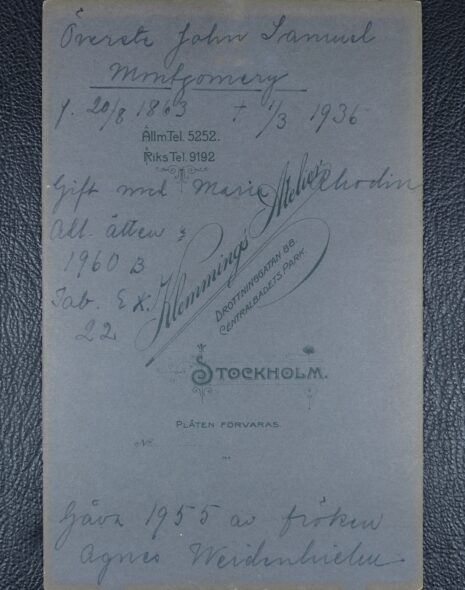 Överste John Samuel
Montgomery
f. 20/8 1863 † 1/3 1936
Allm.Tel. 5252.
Riks Tel. 9192
Gift med Marie Rhodin
Atl. ätten
1960 B
Tab. EX.
22
Klemmings Atelier
DROTTNINGGATAN 88.
CENTRALBADETS PARK.
STOCKHOLM.
PLÅTEN FÖRVARAS.
No
Gåva 1955 av fröken
Agnes